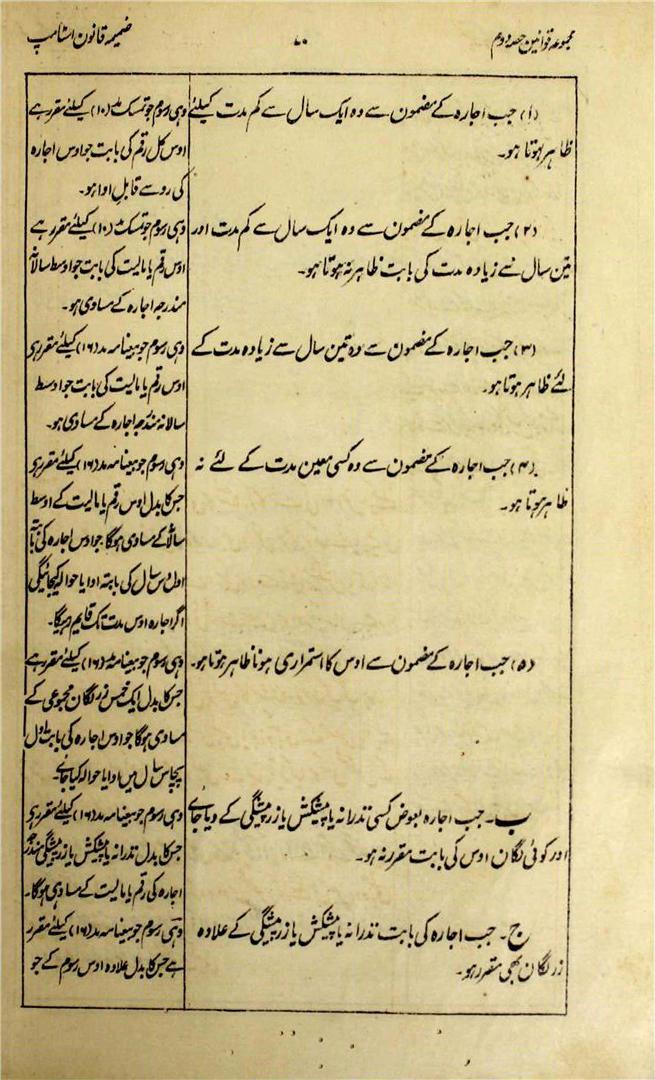 مجموعہ قوانین حصہ دوم
۷۰
ضمیمہ قانون اسٹامپ
(۱) جب اجارہ کے مضمون سے وہ ایک سال سے کم مدت کیلئے
ظاہر ہوتا ہو۔
وہی رسوم جو تمسک مد (۱۰) کیلئے مقرر ہے
اوس کل رقم کی بابت جو اوس اجارہ
کی رو سے قابل ادا ہو۔
(۲) جب اجارہ کے مضمون سے وہ ایک سال سے کم مدت اور
تین سال سے زیادہ مدت کی بابت ظاہر نہ ہوتا ہو۔
وہی رسوم جو تمسک مد (۱۰) کیلئے مقرر ہے
اوس رقم یا مالیت کی بابت جو اوسط سالانہ
مندرجہ اجارہ کے مساوی ہو۔
(۳) جب اجارہ کے مضمون سے وہ تین سال سے زیادہ مدت کے
لئے ظاہر ہوتا ہو۔
وہی رسوم جو بیعنامہ مد (۱۶) کیلئے مقرر ہی
اوس رقم یا مالیت کی بابت جو اوسط
سالانہ مندرجہ اجارہ کے مساوی ہو۔
(۴) جب اجارہ کے مضمون سے وہ کسی معین مدت کے لئے نہ
ظاہر ہوتا ہو۔
وہی رسوم جو بیعنامہ مد (۱۶) کیلئے مقرر ہی
جس کا بدل اوس رقم یا مالیت کے اوسط
سالانہ کے مساوی ہوگا جو اوس اجارہ کی بابتہ
اول دس سال کی بابتہ ادا یا حوالہ کیجائیگی
اگر اجارہ اوس مدت تک قایم رہیگا۔
(۵) جب اجارہ کے مضمون سے اوس کا استمراری ہونا ظاہر ہوتا ہو۔
وہی رسوم جو بیعنامہ مد (۱۶) کیلئے مقرر ہے
جس کا بدل ایک خمس زر لگان مجموعی کے
مساوی ہوگا جو اوس اجارہ کی بابت اول
پچاس سال میں ادا یا حوالہ کیا جائے۔
ب۔ جب اجارہ بعوض کسی نذرانہ یا پیشکش یا زر پیشگی کے دیا جائے
اور کوئی لگان اوس کی بابت مقرر نہ ہو۔
وہی رسوم جو بیعنامہ مد (۱۶) کیلئے مقرر ہی
جس کا بدل نذرانہ یا پیشکش یا زر پیشگی مندرجہ
اجارہ کی رقم یا مالیت کے مساوی ہوگا۔
ج۔ جب اجارہ کی بابت نذرانہ یا پیشکش یا زر پیشگی کے علاوہ
زر لگان بھی مقرر ہو۔
وہی رسوم جو بیعنامہ مد (۱۶) کیلئے مقرر
ہے جس کا بدل علاوہ اوس رسوم کے جو